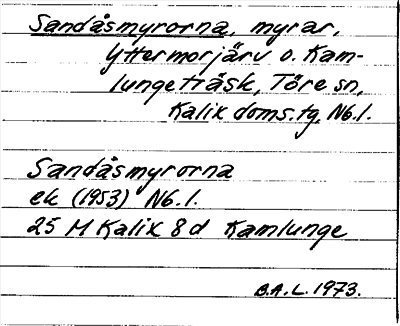 Sandåsmyrorna, myrar,
Yttermorjärv o. Kam-
lungeträsk, Töre sn,
Kalix doms.tg, Nb.l.
Sandåsmyrorna
ek (1953) Nb.l.
25 M Kalix 8d Kamlunge
B.A.L. 1973.